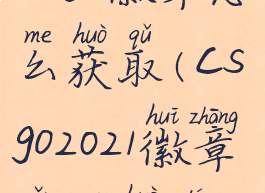 me huò qǔ
么获取(CS
huī zhāng
go2021徽章